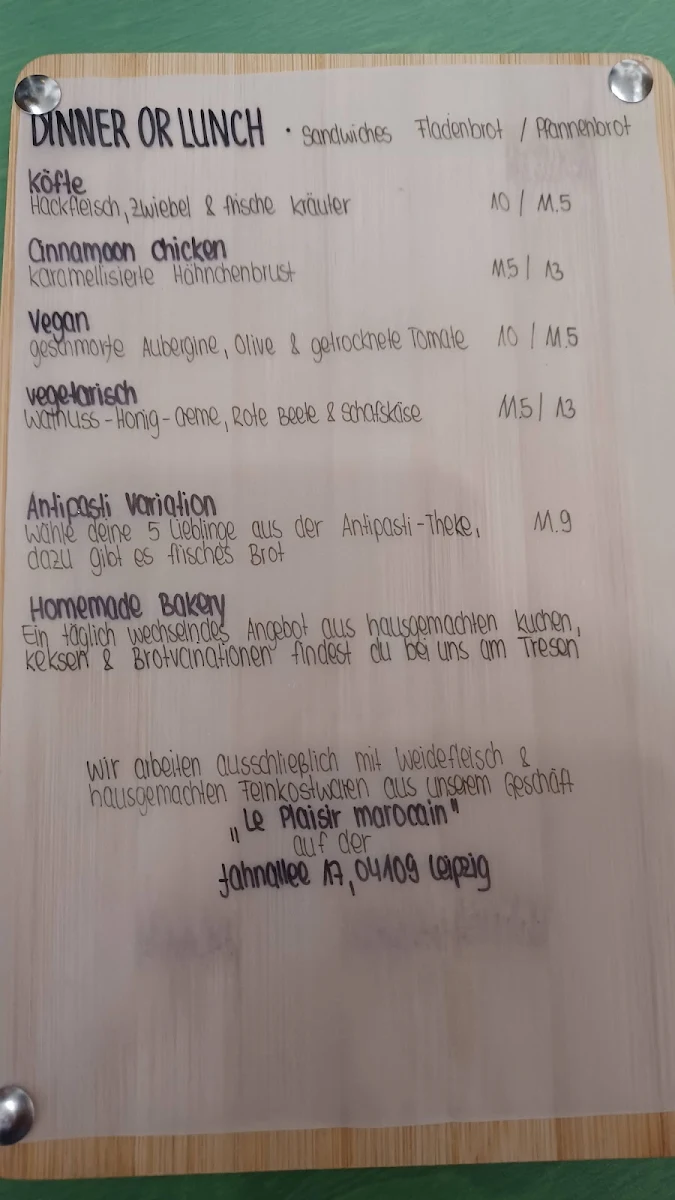 DINNER OR LUNCH · Sandwiches Fladenbrot / Pfannenbrot
Köfte
Hackfleisch, Zwiebel & frische Kräuter 10 / 11.5
Cinnamoon Chicken
karamellisierte Hähnchenbrust 11.5 / 13
Vegan
geschmorte Aubergine, Olive & getrocknete Tomate 10 / 11.5
vegetarisch
Walnuss-Honig-Creme, Rote Beete & Schafskäse 11.5 / 13
Antipasti Variation
Wähle deine 5 Lieblinge aus der Antipasti-Theke, 11.9
dazu gibt es frisches Brot
Homemade Bakery
Ein täglich wechselndes Angebot aus hausgemachten Kuchen,
Keksen & Brotvariationen findest du bei uns am Tresen
Wir arbeiten ausschließlich mit Weidefleisch &
hausgemachten Feinkostwaren aus unserem Geschäft
„Le Plaisir marocain"
auf der
Jahnallee 17, 04109 Leipzig